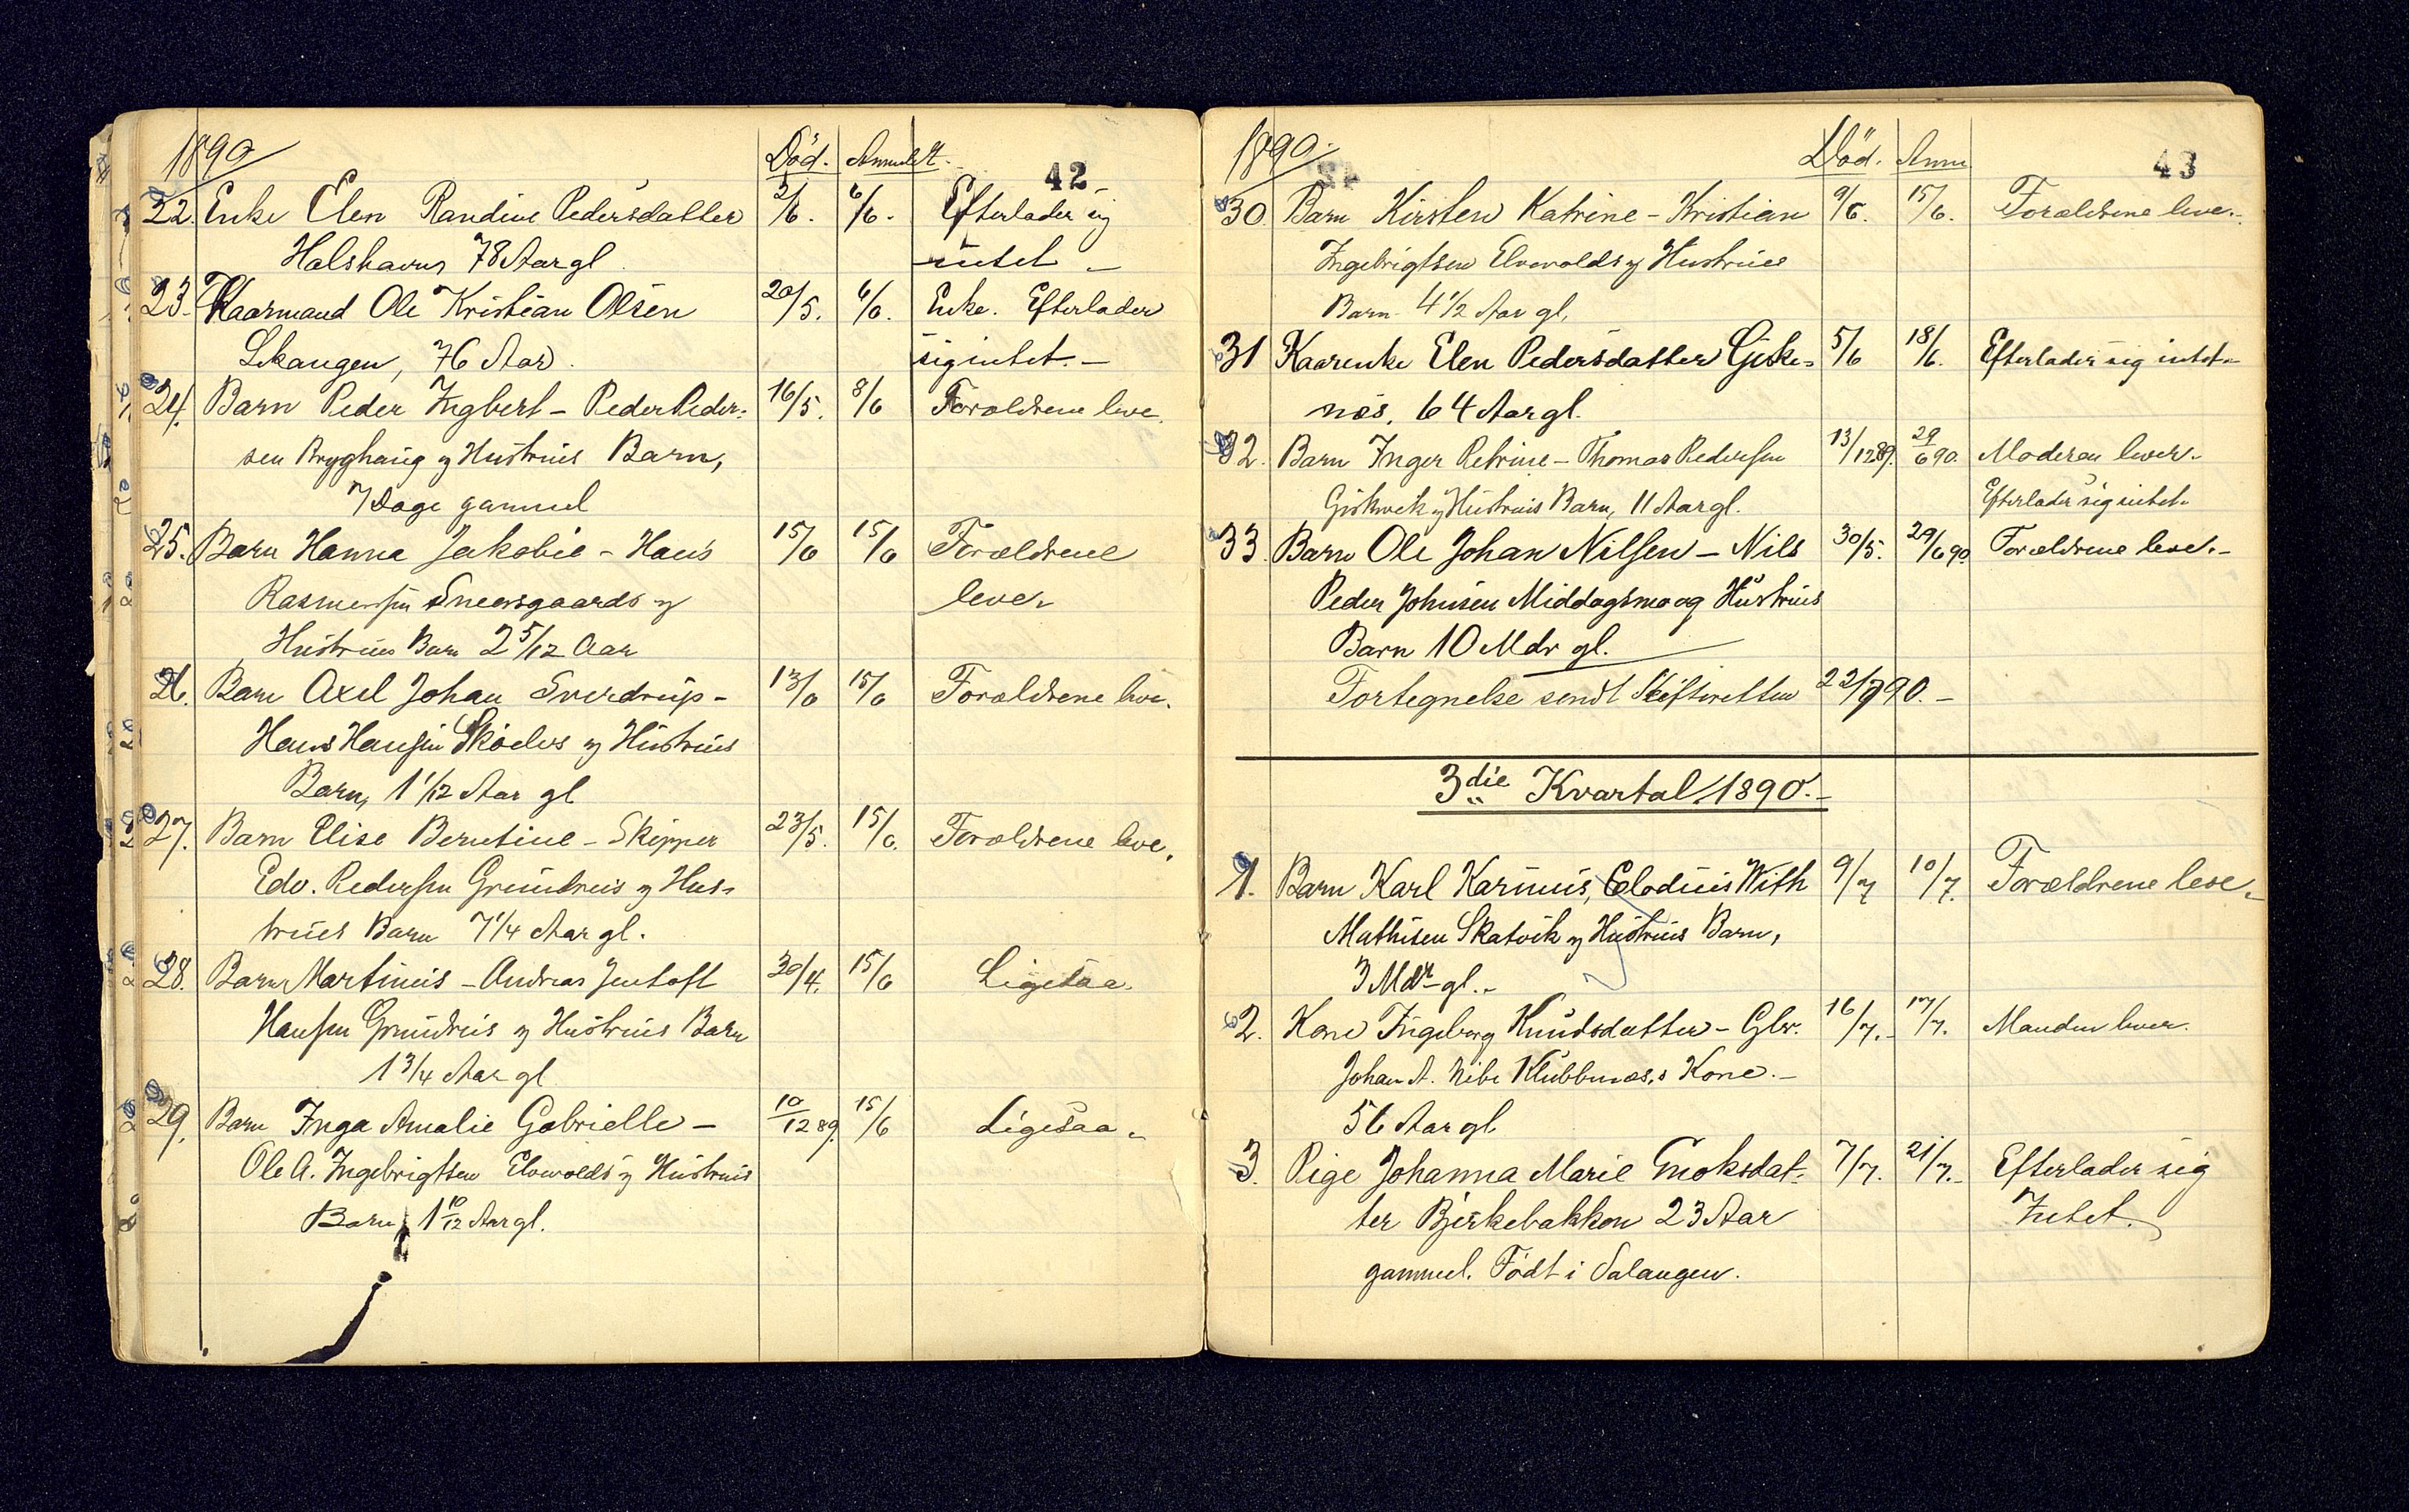 1890
Död. Anmeldt.
42
22. Enke Elen Randine Pedersdatter 2/6. 6/6. Efterlader sig
Halshavn 78 Aar gl. intet –
23. Kaarmand Ole Kristian Olsen 20/5. 6/6. Enke. Efterlader
Lekangen, 76 Aar. sig intet. –
24. Barn Peder Ingbert – Peder Peder- 16/5. 8/6 Forældrene leve.
sen Bryghaug og Hustrues Barn,
7 Dage gammel
25. Barn Hanna Jakobie – Hans 15/6 15/6 Forældrene
Rasmussen Sneersgaards og leve.
Hustrues Barn 2 5/12 Aar
26. Barn Axel Johan Sverdrup – 13/6 15/6 Forældrene leve.
Hans Hansen Skoelvs og Hustrues
Barn, 1 1/12 Aar gl
27. Barn Elise Berntine – Skipper 23/5. 15/6. Forældrene leve.
Edv. Pedersen Grundreis og Hus-
trues Barn 7 1/4 Aar gl.
28. Barn Martinus – Andreas Jentoft 30/4. 15/6 Ligesaa.
Hansen Grundreis og Hustrues Barn
1 3/4 Aar gl
29. Barn Inga Amalie Gabrielle – 10/12 89. 15/6 Ligesaa.
Ole A. Ingebrigtsen Elvevolds og Hustrues
Barn, 1 10/12 Aar gl.
1890.
Död. Anm
43
30. Barn Kirsten Katrine – Kristian 9/6. 15/6. Forældrene leve. –
Ingebrigtsen Elvevolds og Hustrues
Barn 4 1/2 Aar gl,
31 Kaarenke Elen Pedersdatter Giske- 5/6 18/6. Efterlader sig intet –
næs, 64 Aar gl.
32. Barn Inger Petrine – Thomas Pedersen 13/12 89. 29/6 90. Moderen lever.
Giskevik og Hustrues Barn, 11 Aar gl. Efterlader sig intet.
33. Barn Ole Johan Nilsen – Nils 30/5. 29/6 90. Forældrene leve. –
Peder Johnsen Middagsmo og Hustrues
Barn 10 Mdr gl.
Fortegnelse sendt Skifteretten 22/7 90. –
3die Kvartal 1890. –
1. Barn Karl Karinus, Elodius With 9/7 10/7. Forældrene leve.
Mathisen Skatvik og Hustrues Barn,
3 Mdr gl. –
2. Kone Ingeborg Knudsdatter – Gbr. 16/7. – 17/7. Manden lever.
Johan A. Nibe Klubbnæs,s Kone. –
56 Aar gl
3. Pige Johanna Marie Enoksdat- 7/7. 21/7. – Efterlader sig
ter Bjerkebakken 23 Aar Intet.
gammel. Födt i Salangen.